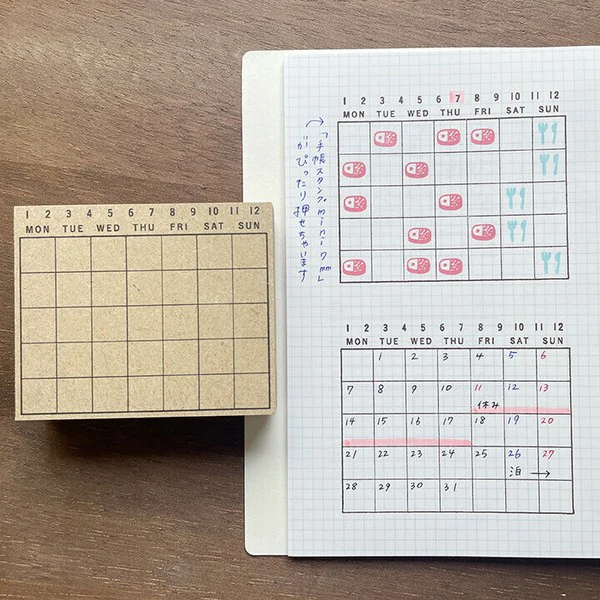 1 2 3 4 5 6 7 8 9 10 11 12
MON TUE WED THU FRI SAT SUN
1 2 3 4 5 6 7 8 9 10 11 12
MON TUE WED THU FRI SAT SUN
「手帳スタンプmini 7mm」
がぴったり押せちゃいます
1 2 3 4 5 6 7 8 9 10 11 12
MON TUE WED THU FRI SAT SUN
1 2 3 4 5 6
7 8 9 10 11 12 13
休み
14 15 16 17 18 19 20
21 22 23 24 25 26 27
泊 →
28 29 30 31